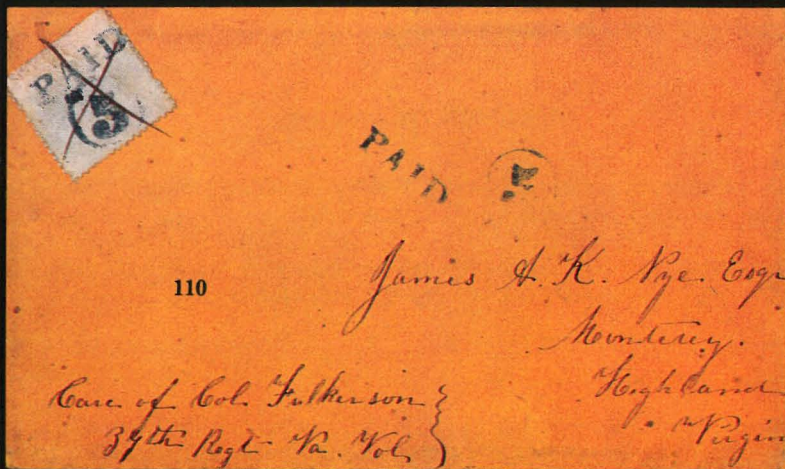 PAID
5
PAID
5
110
James A. K. Nye Esqr
Monterey.
Highland
Virgin
Care of Col. Fulkerson
37th Regt Va. Vol.